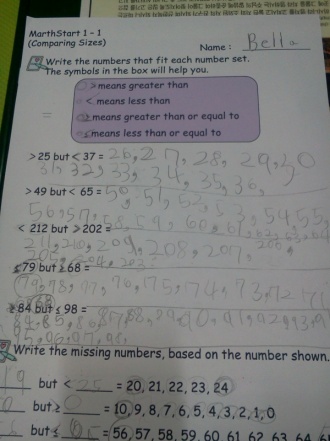 MarthStart 1 - 1
(Comparing Sizes)
Name : Bella
Write the numbers that fit each number set.
The symbols in the box will help you.
> means greater than
< means less than
≥ means greater than or equal to
≤ means less than or equal to
> 25 but < 37 = 26, 27, 28, 29, 30
31, 32, 33, 34, 35, 36,
> 49 but < 65 = 50, 51, 52, 53, 54, 55,
56, 57, 58, 59, 60, 61, 62, 63, 64
< 212 but ≥ 202 =
211, 210, 209, 208, 207,
206,
205, 204, 203,
≤ 79 but ≥ 68 =
79, 78, 77, 76, 75, 74, 73, 72, 71
≥ 84 but ≤ 98 =
84, 85, 86, 87, 88, 89, 90, 91, 92, 93, 94
95, 96, 97, 98,
Write the missing numbers, based on the number shown.
19 but < 25 = 20, 21, 22, 23, 24
but ≥ = 10, 9, 8, 7, 6, 5, 4, 3, 2, 1, 0
but ≤ = 56, 57, 58, 59, 60, 61, 62, 63, 64